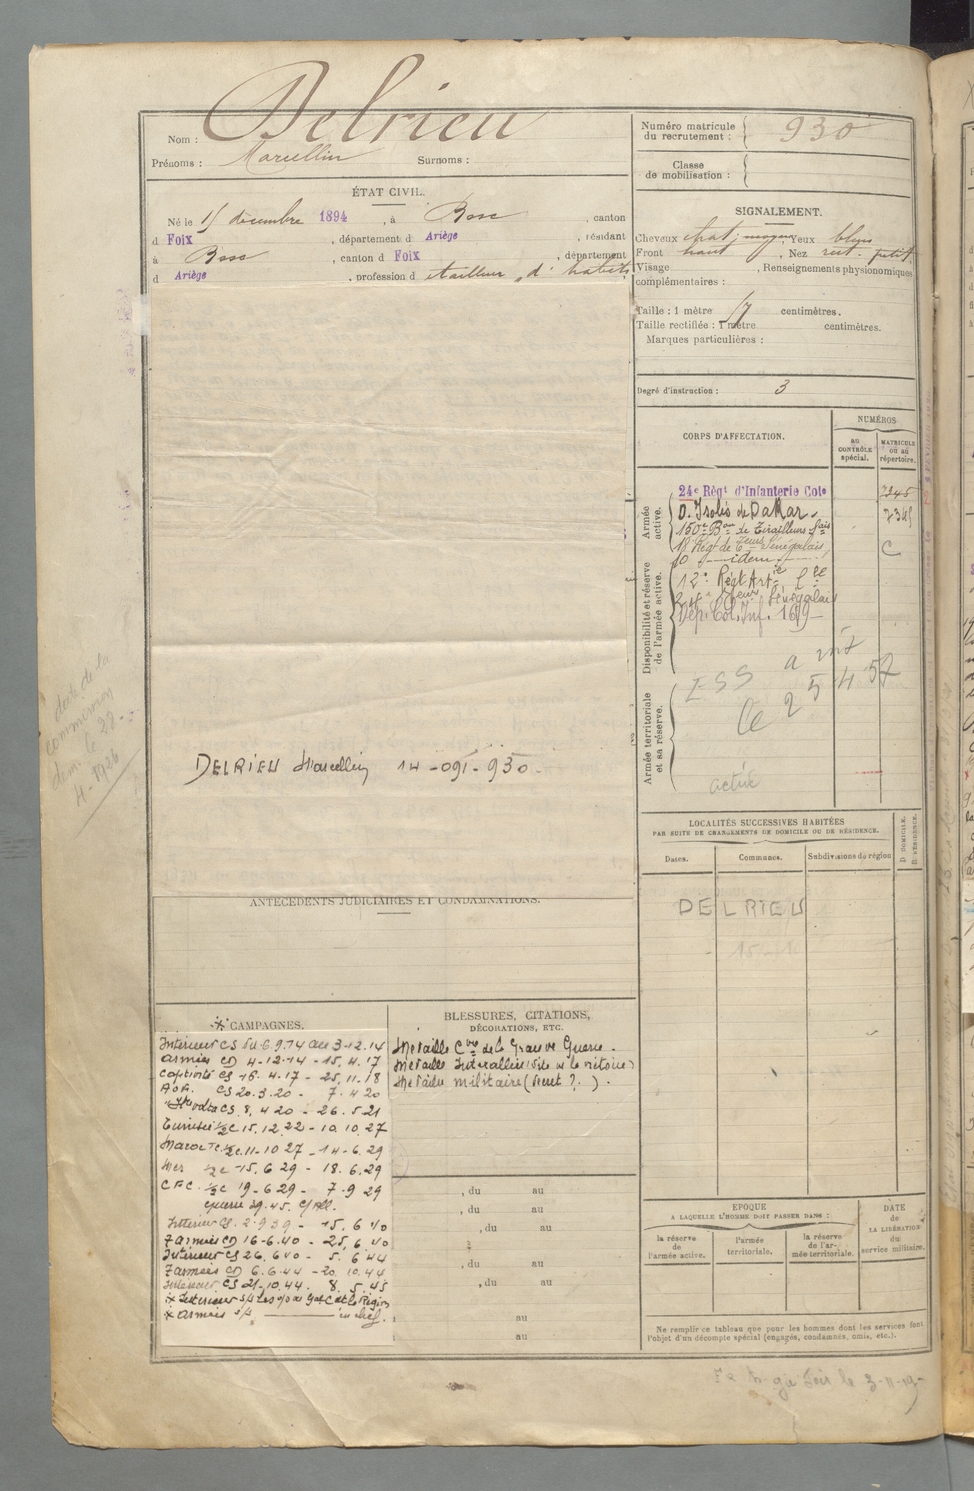 Delrieu
Nom :
Prénoms : Marcellin Surnoms :
Numéro matricule
du recrutement : 930
Classe
de mobilisation :
ÉTAT CIVIL.
Né le 15 décembre 1894, à Bosc, canton
d Foix, département d Ariège, résidant
à Bosc, canton d Foix, département
d Ariège, profession d tailleur d'habits
SIGNALEMENT.
Cheveux chat. moyen, Yeux bleus
Front haut, Nez rect. petit
Visage , Renseignements physionomiques
complémentaires :
Taille : 1 mètre 57 centimètres.
Taille rectifiée : 1 mètre centimètres.
Marques particulières :
Degré d'instruction : 3
CORPS D'AFFECTATION.
NUMÉROS
au
CONTRÔLE
spécial.
MATRICULE
ou au
répertoire.
Armée
active.
24e Régt d'Infanterie Cole 7345
D. Isolés de Dakar 7345
150e Bon de Tirailleurs Sais
18 Régt de Teurs Sénégalais C
10 idem
Disponibilité et réserve
de l'armée active.
12e Régt Artie Cle
Dép. Col. Inf. 169
Armée territoriale
et sa réserve.
active
DELRIEU Marcellin 14-091-930
LOCALITÉS SUCCESSIVES HABITÉES
PAR SUITE DE CHANGEMENTS DE DOMICILE OU DE RÉSIDENCE.
Dates. Communes. Subdivisions de région
D. DOMICILE.
R. RÉSIDENCE.
DELRIEU
ANTÉCÉDENTS JUDICIAIRES ET CONDAMNATIONS.
CAMPAGNES.
Intérieur CS du 6.9.14 au 3-12.14
armées CD 4-12-14 - 15.4.17
captivité CS 16.4.17 - 25.11.18
AOF. CS 20.3.20 - 7.4 20
CS 8.4 20 - 26.5 21
Tunisie ½C 15.12.22 - 10.10.27
Maroc ½C 11-10 27 - 14-6.29
Mer ½C 15.6 29 - 18.6.29
CFC. ½C 19-6 29 - 7-9 29
guerre 39.45. C/All.
Intérieur CS. 2-9 39 - 15.6 40
armées CD 16-6.40 - 25.6 40
Intérieur CS 26.6 40 - 5.6 44
armées CD 6.6.44 - 20.10.44
Intérieur CS 21.10.44. 8.5.45
BLESSURES, CITATIONS,
DÉCORATIONS, ETC.
Médaille Cve de la Grande Guerre
Médaille Interalliée (dite de la victoire)
Médaille militaire
, du au
, du au
, du au
, du au
, du au
au
au
EPOQUE
A LAQUELLE L'HOMME DOIT PASSER DANS :
la réserve
de
l'armée active.
l'armée
territoriale.
la réserve
de l'ar-
mée territoriale.
DATE
de
LA LIBÉRATION
du
service militaire.
Ne remplir ce tableau que pour les hommes dont les services font
l'objet d'un décompte spécial (engagés, condamnés, omis, etc.).